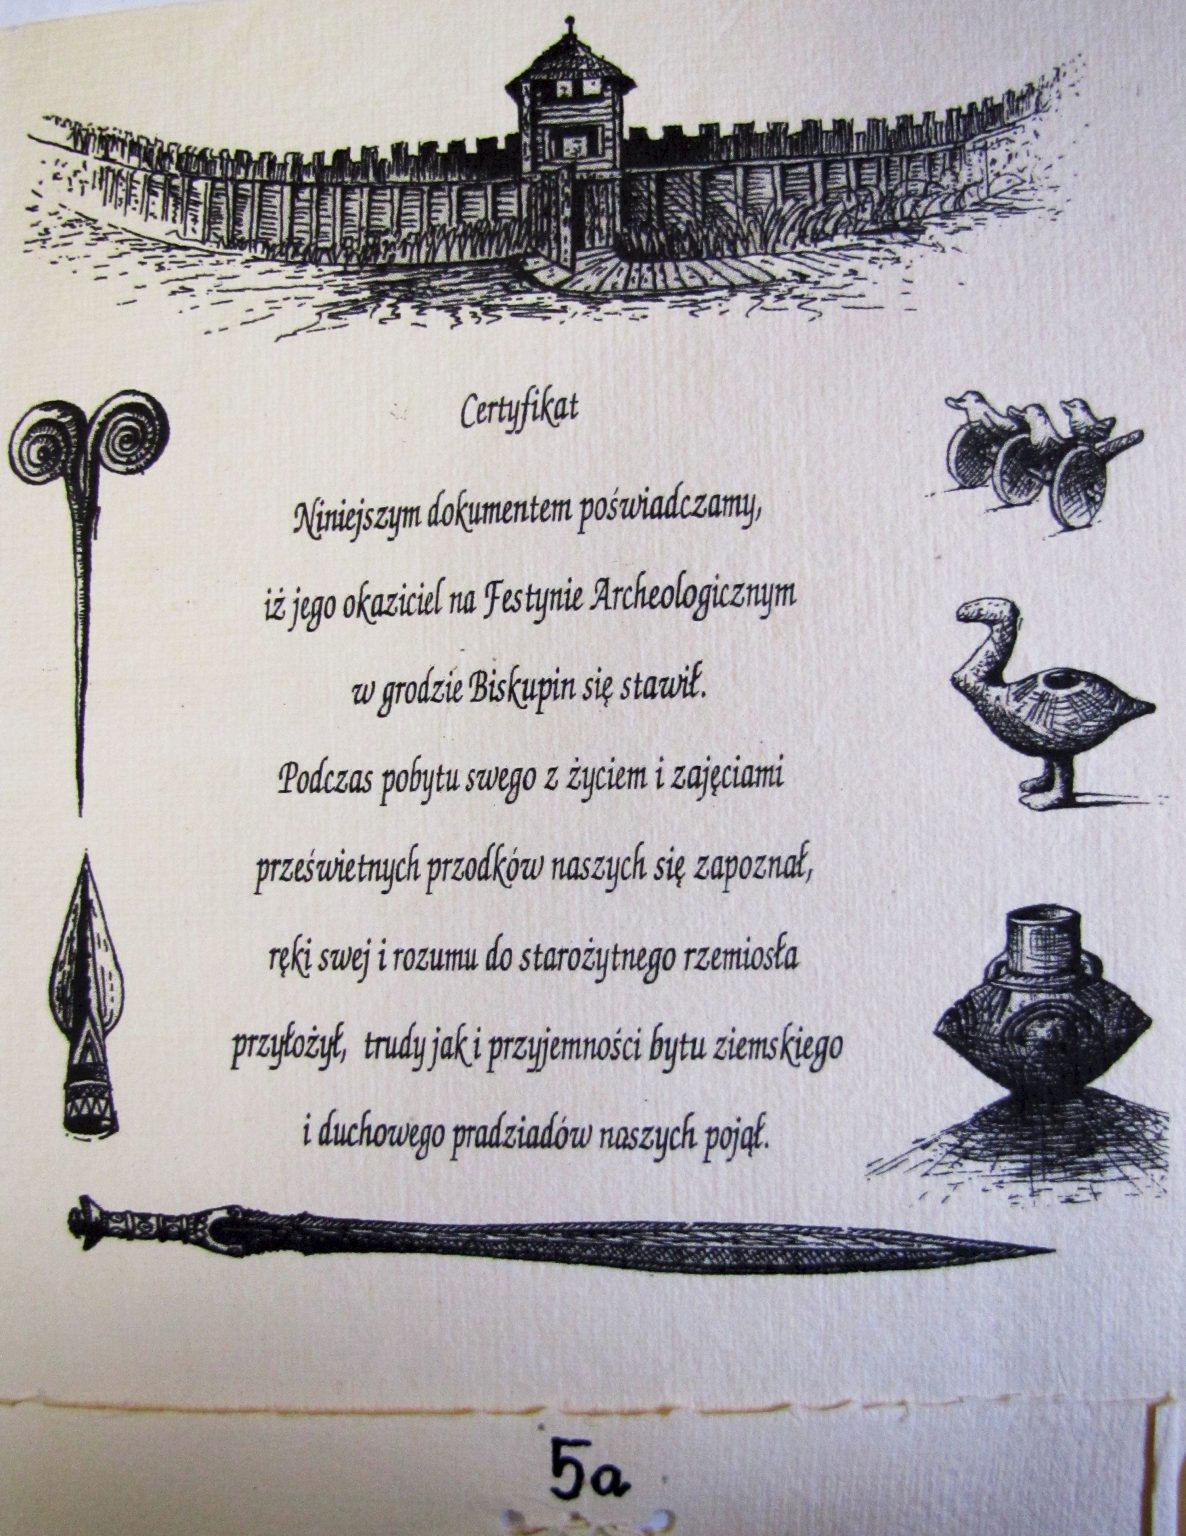 Certyfikat
Niniejszym dokumentem poświadczamy,
iż jego okaziciel na Festynie Archeologicznym
w grodzie Biskupin się stawił.
Podczas pobytu swego z życiem i zajęciami
prześwietnych przodków naszych się zapoznał,
ręki swej i rozumu do starożytnego rzemiosła
przyłożył, trudy jak i przyjemności bytu ziemskiego
i duchowego pradziadów naszych pojął.
5a